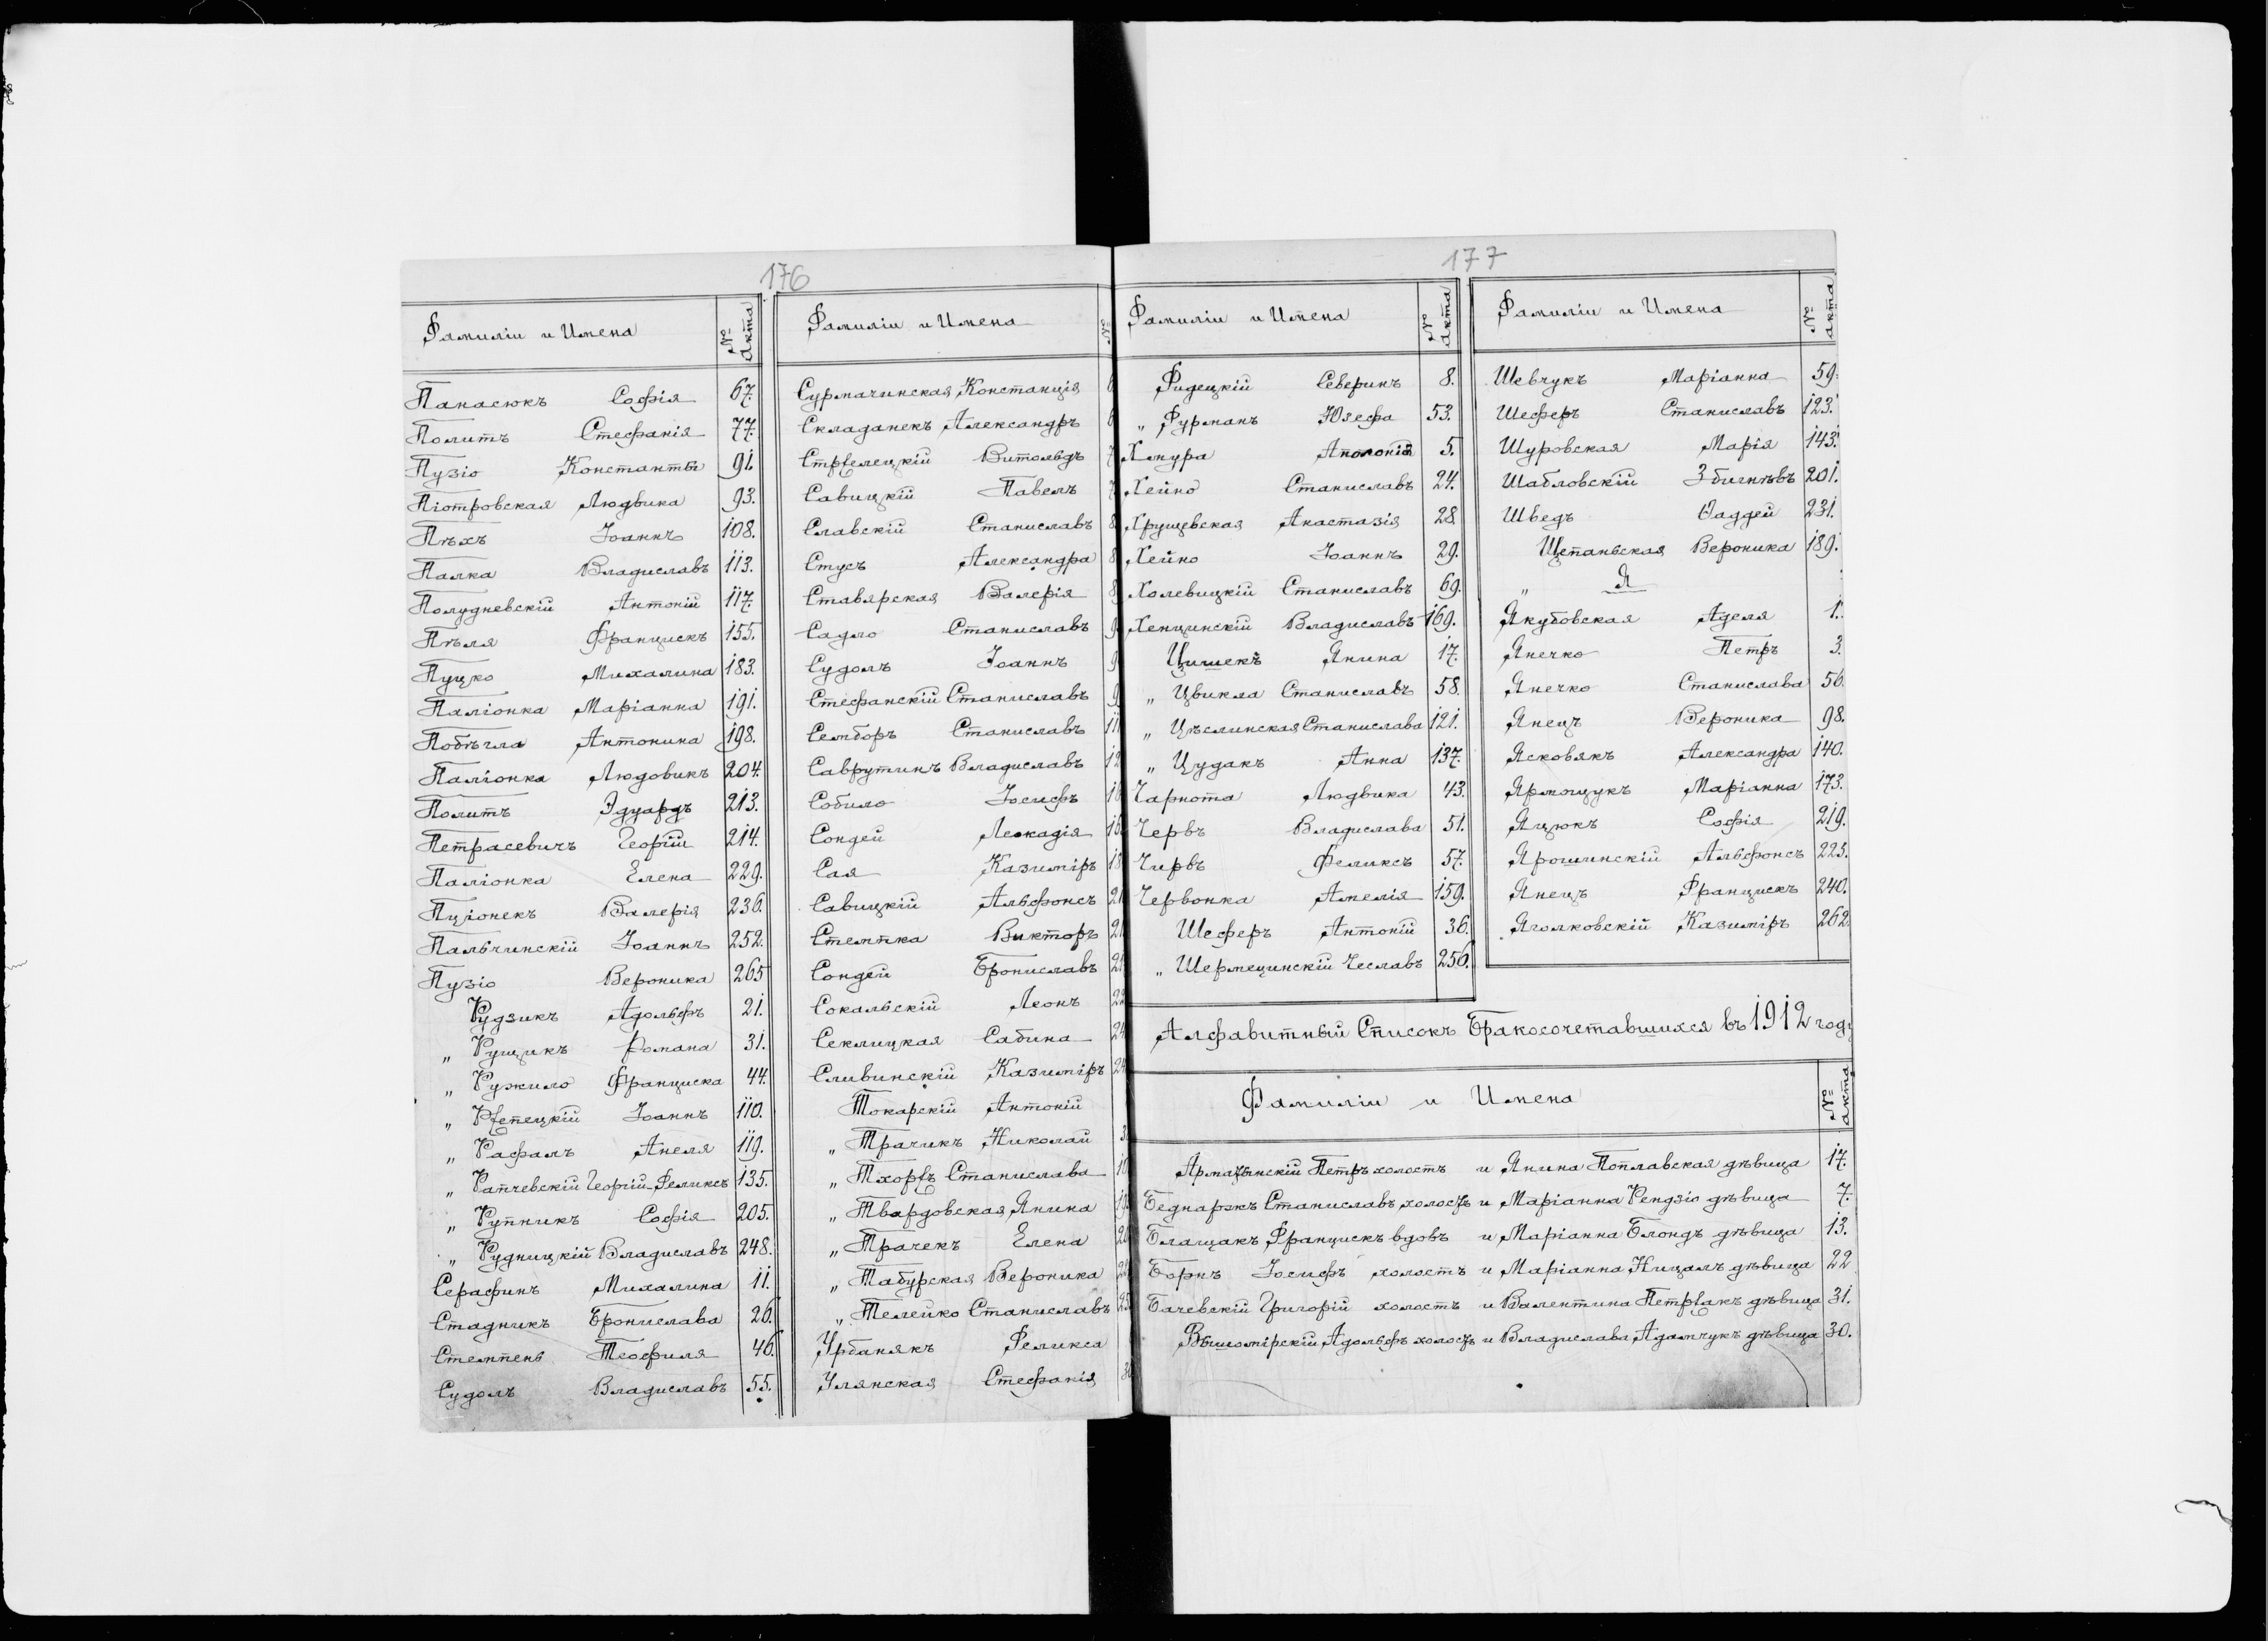 176
Фамиліи и Имена № Акта
Панасюкъ Софія 67.
Политъ Стефанія 77.
Пузіо Константы 91.
Піотровская Людвика 93.
Пѣхъ Іоаннъ 108.
Палка Владиславъ 113.
Полудневскій Антоній 117.
Пѣля Францискъ 155.
Пуцко Михалина 183.
Паліонка Маріанна 191.
Побѣгла Антонина 198.
Паліонка Людовикъ 204.
Политъ Эдуардъ 213.
Петрасевичъ Георгій 214.
Паліонка Елена 229.
Пуціонекъ Валерія 236.
Пальчинскій Іоаннъ 252.
Пузіо Вероника 265
Рудзикъ Адольфъ 21.
„ Рущикъ Романа 31.
„ Ружило Франциска 44.
„ Рѣпецкій Іоаннъ 110.
„ Рафалъ Анеля 119.
„ Рапчевскій Георгій-Феликсъ 135.
„ Рупникъ Софія 205.
„ Рудницкій Владиславъ 248.
Серафинъ Михалина 11.
Стадникъ Брониславa 26.
Стемпень Теофиля 46.
Судолъ Владиславъ 55.
Фамиліи и Имена №
Сурмачинская Констанція
Складанекъ Александръ
Стрѣлецкій Витольдъ
Савицкій Павелъ
Славскій Станиславъ
Стусъ Александра
Ставярская Валерія
Садло Станиславъ
Судолъ Іоаннъ
Стефанскій Станиславъ
Семборъ Станиславъ
Саврутинъ Владиславъ
Собило Іосифъ
Сондей Леокадія
Сая Казиміръ
Савицкій Альфонсъ
Стемпка Викторъ
Сондей Брониславъ
Сокальскій Леонъ
Секлицкая Сабина
Сливинскій Казиміръ
Токарскій Антоній
„ Трачикъ Николай
„ Тхорѣ Станислава
„ Твардовская Янина
„ Трачекъ Елена
„ Табурская Вероника
„ Телейко Станиславъ
Урбанякъ Феликса
Улянская Стефанія
177
Фамиліи и Имена № Акта
Фидецкій Северинъ 8.
„ Фурманъ Юзефа 53.
Хмура Аполонія 5.
Хейно Станиславъ 24.
Хрущевская Анастазія 28
Хейно Іоаннъ 29.
Холевицкій Станиславъ 69.
Хенцинскій Владиславъ 169.
Цишекъ Янина 17.
„ Цвикла Станиславъ 58.
„ Цѣслинская Станислава 121.
„ Цудакъ Анна 137.
Чарнота Людвика 43.
Червъ Владислава 51.
Чирвъ Феликсъ 57.
Червонка Амелія 159.
Шеферъ Антоній 36.
„ Шермецинскій Чеславъ 256.
Фамиліи и Имена № акта
Шевчукъ Маріанна 59.
Шеферъ Станиславъ 123.
Шуровская Марія 143.
Шабловскій Збигнѣвъ 201.
Шведъ Ѳаддей 231.
Щепаньская Вероника 189.
„ Я
Якубовская Аделя 1.
Янечко Петръ 3.
Янечко Станислава 56.
Янецъ Вероника 98.
Ясковякъ Александра 140.
Ярмощукъ Маріанна 173.
Яцюкъ Софія 219.
Ярошинскій Альфонсъ 225.
Янецъ Францискъ 240.
Яголковскій Казиміръ 262.
Алфавитный Списокъ Бракосочетавшихся въ 1912 году
Фамиліи и Имена № акта
Армацынскій Петръ холостъ и Янина Поплавская дѣвица 17.
Беднаржъ Станиславъ холостъ и Маріанна Рендзіо дѣвица 7.
Блащакъ Францискъ вдовъ и Маріанна Блондъ дѣвица 13.
Борнъ Іосифъ холостъ и Маріанна Ницалъ дѣвица 22
Бачевскій Григорій холостъ и Валентина Петрѣакъ дѣвица 31.
Вышомірскій Адольфъ холостъ и Владислава Адамчукъ дѣвица 30.